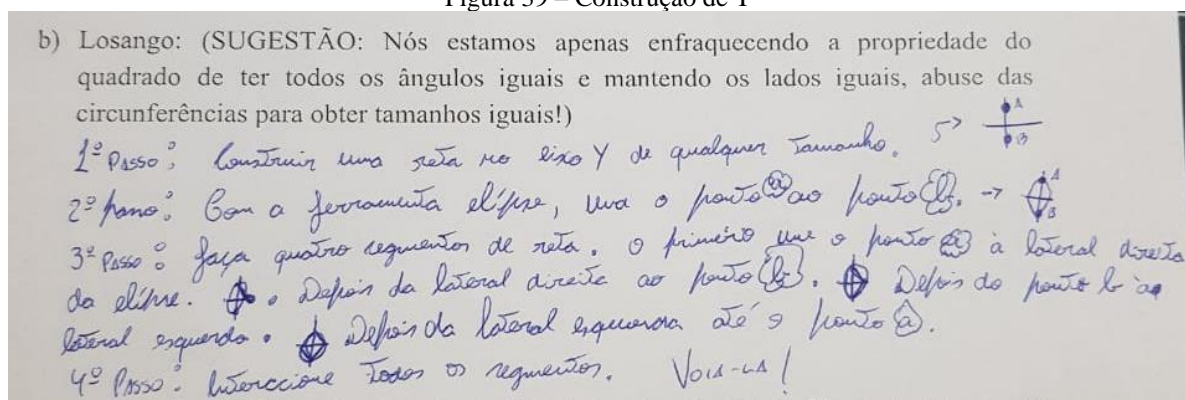 Figura 39 – Construção de T
b) Losango: (SUGESTÃO: Nós estamos apenas enfraquecendo a propriedade do
quadrado de ter todos os ângulos iguais e mantendo os lados iguais, abuse das
circunferências para obter tamanhos iguais!)
1º Passo: Construir uma reta no eixo Y de qualquer tamanho. A B
2º passo: Com a ferramenta elípse, una o ponto (a) ao ponto (b). → A B
3º Passo: faça quatro seguimentos de reta. O primeiro une o ponto (a) à lateral direita
da elípse. Depois da lateral direita ao ponto (b). Depois do ponto b à
lateral esquerda. Depois da lateral esquerda até o ponto (a).
4º Passo: Interccione todos os seguimentos. VOIA-LA!